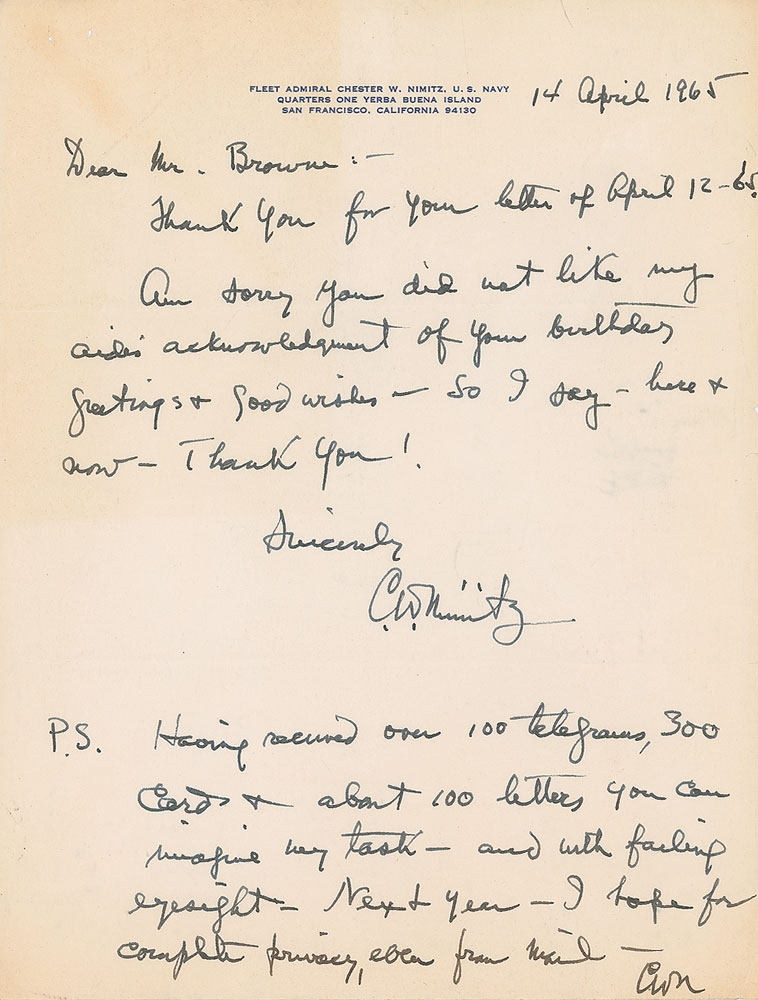 FLEET ADMIRAL CHESTER W. NIMITZ, U. S. NAVY
QUARTERS ONE YERBA BUENA ISLAND
SAN FRANCISCO, CALIFORNIA 94130
14 April 1965
Dear Mr. Browne:—
Thank You for your letter of April 12-65.
Am sorry you did not like my
aide's acknowledgment of your birthday
greetings & good wishes — So I say - here &
now — Thank You!
Sincerely
C.W. Nimitz
P.S. Having received over 100 telegrams, 300
Cards & about 100 letters you can
imagine my task — and with failing
eyesight — Next year — I hope for
complete privacy, even from mail —
CWN